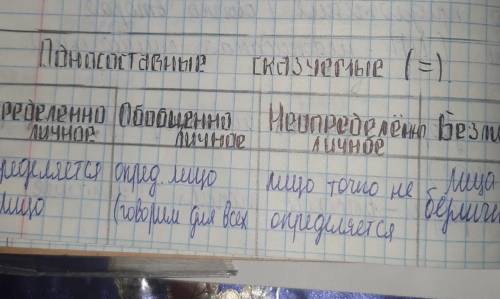 Односоставные сказуемые (=)
ределенно личное
Обобщенно личное
Неопределённо личное
Безли
ределяется лицо
опред. лицо (говорим для всех
лицо точно не определяется
лица